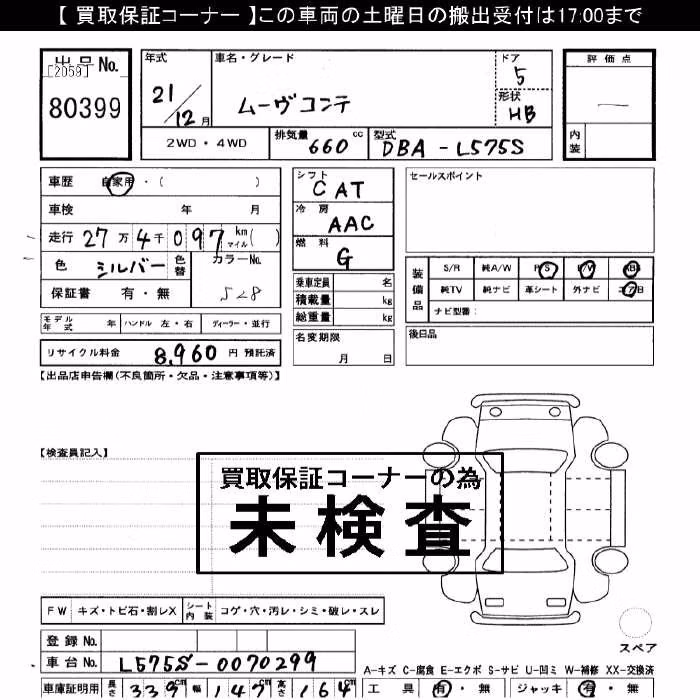 【 買取保証コーナー 】この車両の土曜日の搬出受付は17:00まで
出品 No.
[2059]
80399
年式
21/12月
車名・グレード
ムーヴコンテ
ドア
5
形状
HB
評価点
—
内装
2WD・4WD
排気量
660 cc
型式
DBA-L575S
車歴 自家用・( )
車検 年 月
走行 27万4千097 km マイル ( )
色 シルバー 色替 カラーNo. S28
保証書 有・無
シフト CAT
冷房 AAC
燃料 G
乗車定員 名
積載量 kg
総重量 kg
セールスポイント
装備品
S/R 純A/W P/S P/W ABS
純TV 純ナビ 革シート 外ナビ エアB
ナビ型番:
モデル年式 年 ハンドル 左・右 ディーラー・並行
名変期限
月 日
後日品
リサイクル料金 8,960 円 預託済
【出品店申告欄(不良箇所・欠品・注意事項等)】
【検査員記入】
買取保証コーナーの為
未検査
FW キズ・トビ石・割レX シート内装 コゲ・穴・汚レ・シミ・破レ・スレ
スペア
登録 No.
車台 No. L575S-0070299
A-キズ C-腐食 E-エクボ S-サビ U-凹ミ W-補修 XX-交換済
車庫証明用 長さ 339cm 幅 147cm 高さ 164
工具 有・無 ジャッキ 有・無